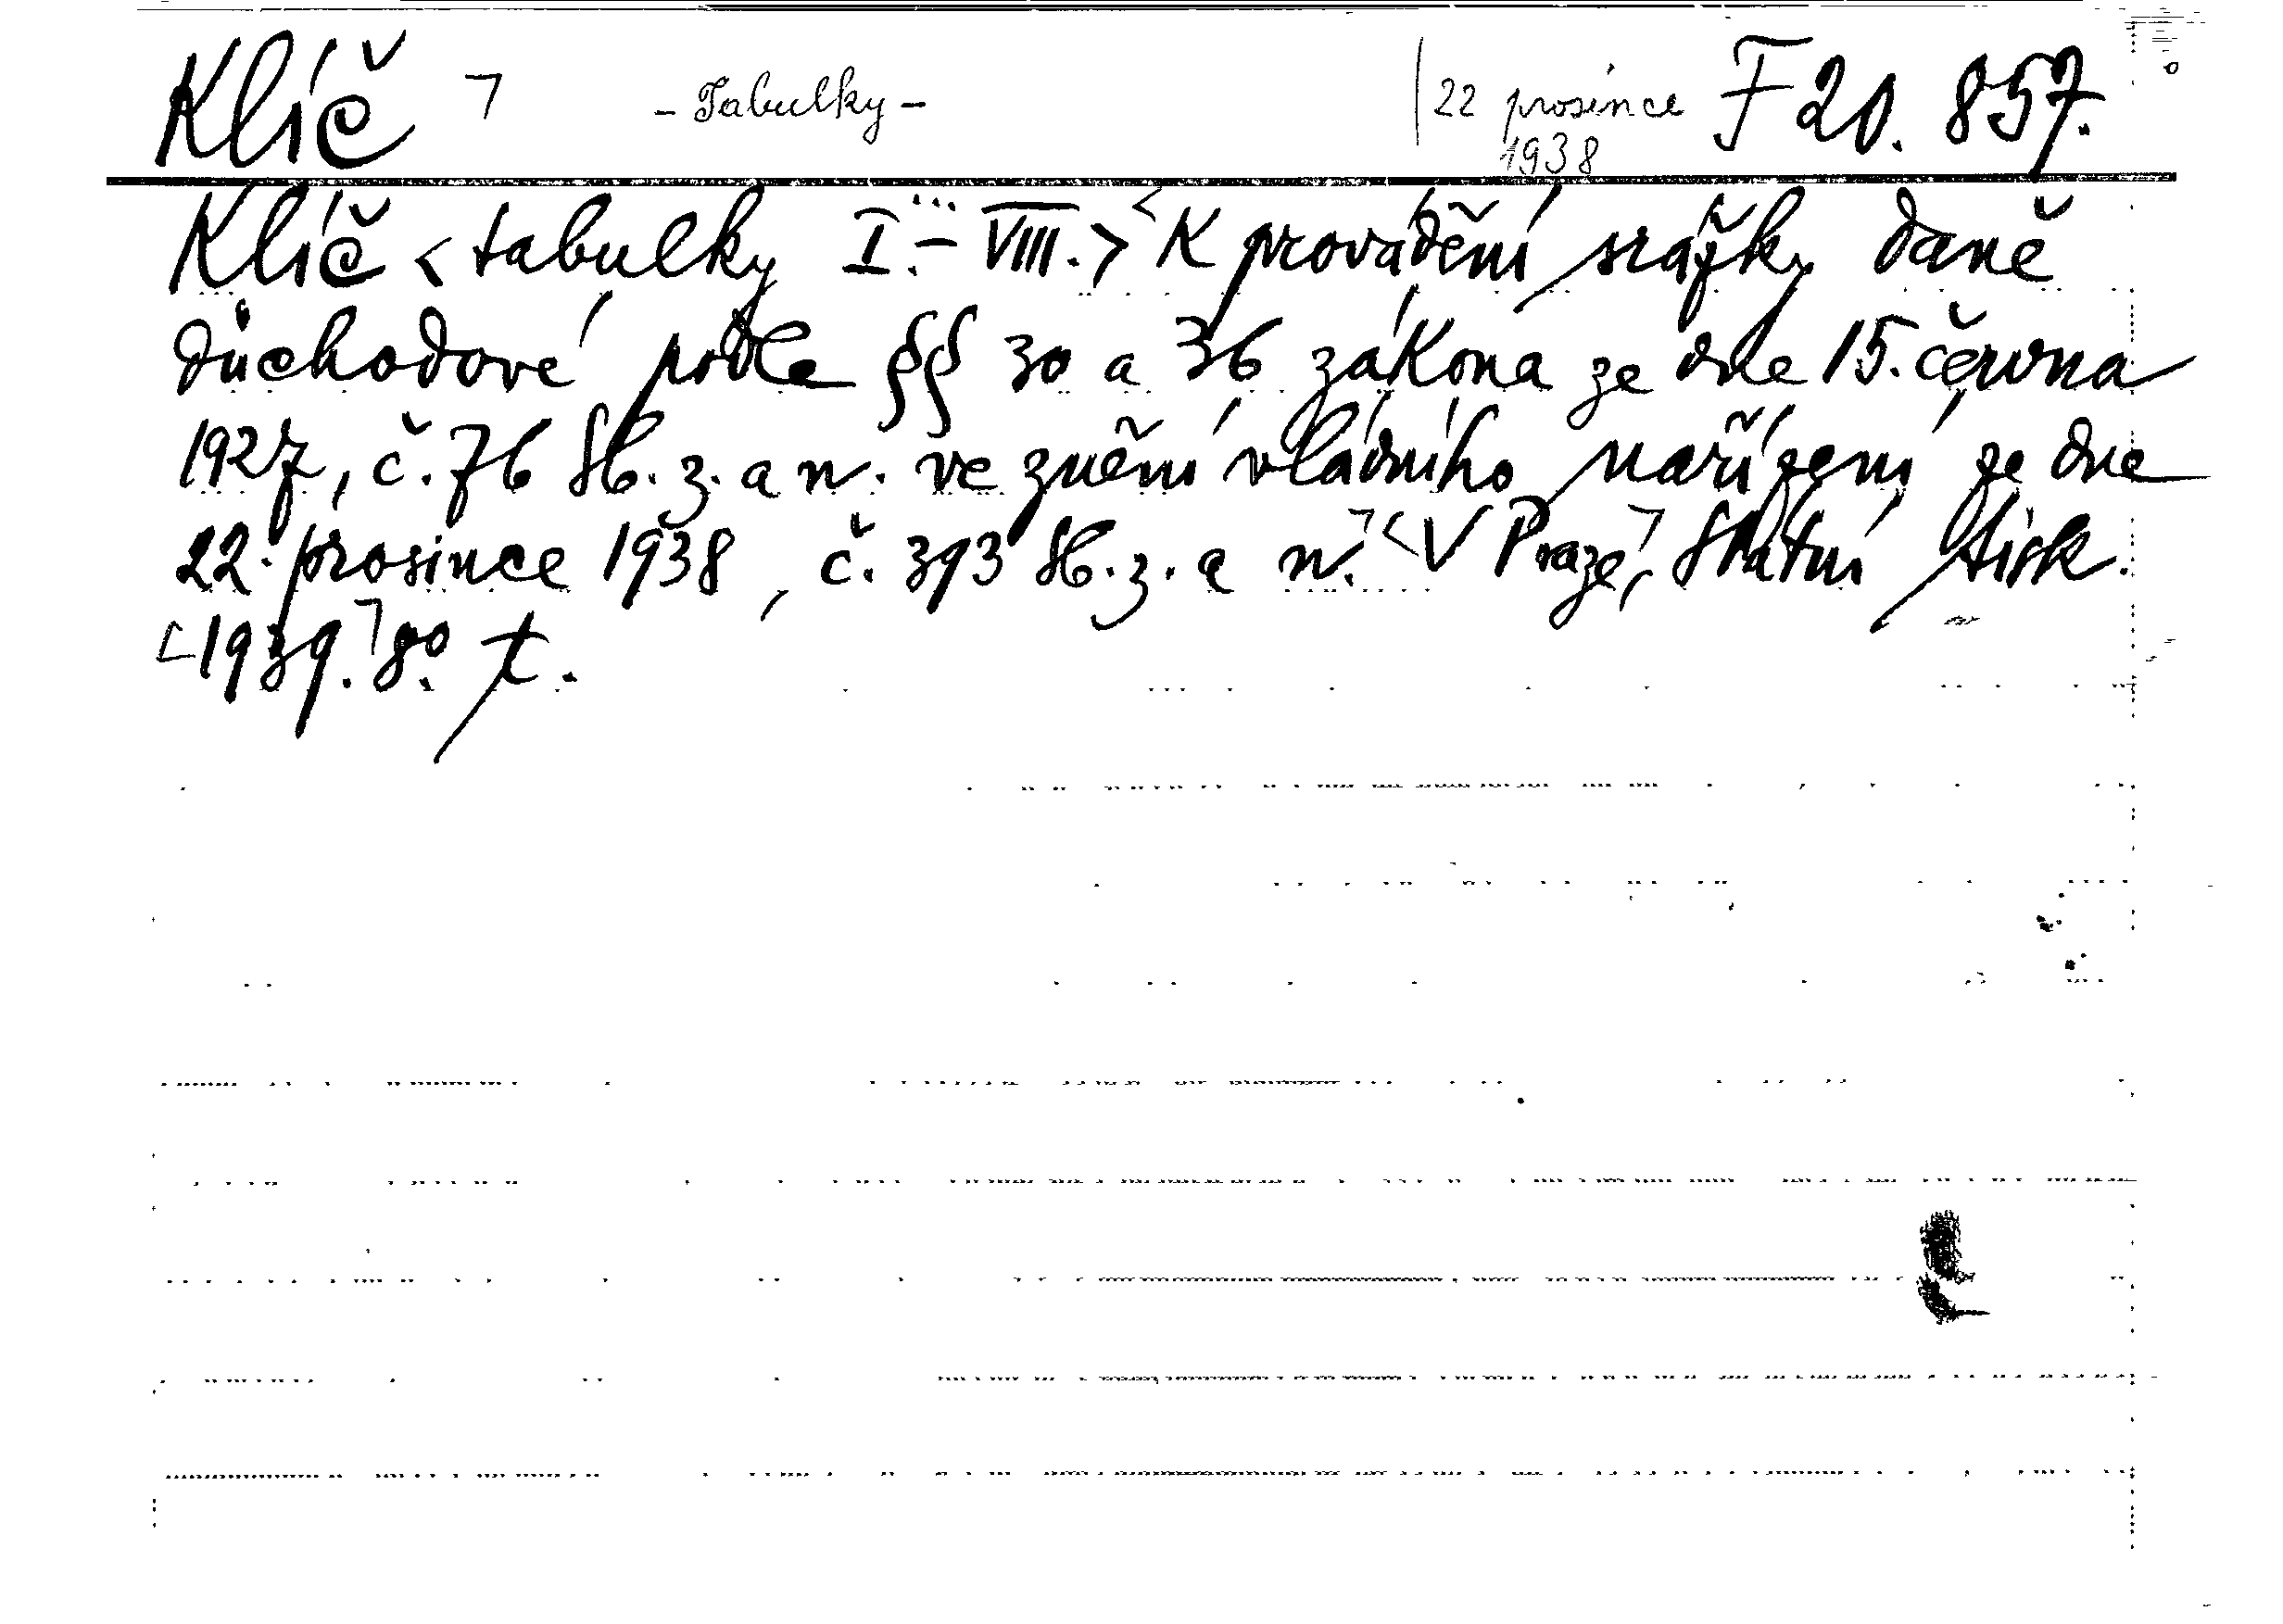 Klíč ¬ - Tabulky - | 22 prosince 1938 F 20. 857.
Klíč < tabulky I. - VIII. > < K provádění srážky daně
důchodové podle §§ 30 a 36 zákona ze dne 15. června
1927, č. 76 Sb. z. a n. ve znění vládního nařízení ze dne
22. prosince 1938, č. 393 Sb. z. a n. ¬ < V Praze, ¬ Státní tisk.
< 1939. ¬ 8°. t.